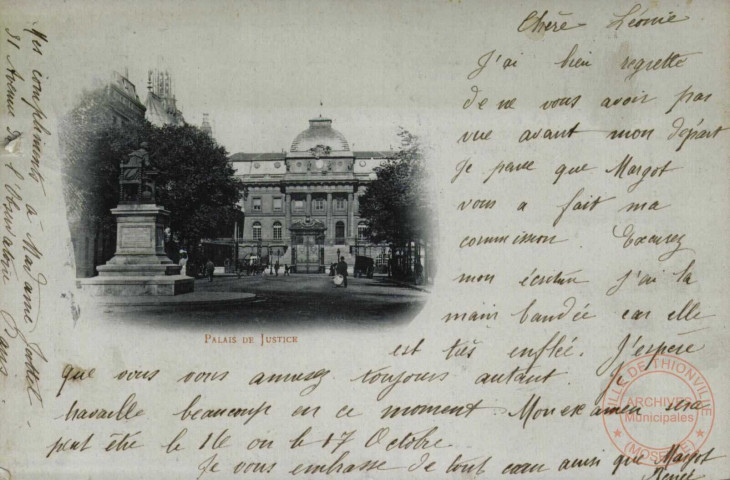 Chère Léonie
J'ai bien regretté
de ne vous avoir pas
vue avant mon départ
Je pense que Margot
vous a fait ma
commission. Excusez
mon écriture j'ai la
main bandée car elle
est très enflée. J'espère
que vous vous amusez toujours autant. Je
travaille beaucoup en ce moment. Mon examen sera
peut être le 16 ou le 17 Octobre.
Je vous embrasse de tout cœur ainsi que Margot
PALAIS DE JUSTICE
Mes compliments à Madame
31 Avenue de l'Observatoire Paris.
VILLE DE THIONVILLE
ARCHIVES
Municipales
(MOSELLE)